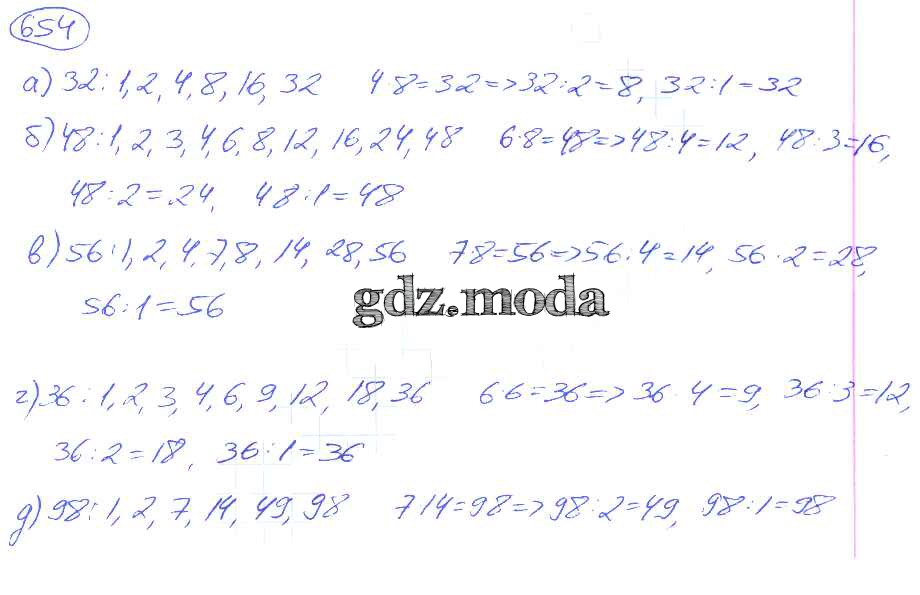 654
а) 32 : 1, 2, 4, 8, 16, 32 4·8=32=>32:2=8, 32:1=32
б) 48 : 1, 2, 3, 4, 6, 8, 12, 16, 24, 48 6·8=48=>48:4=12, 48:3=16,
48:2=24, 48:1=48
в) 56 : 1, 2, 4, 7, 8, 14, 28, 56 7·8=56=>56·4=14, 56·2=28,
56:1=56
gdz.moda
г) 36 : 1, 2, 3, 4, 6, 9, 12, 18, 36 6·6=36=>36·4=9, 36:3=12,
36:2=18, 36:1=36
д) 98 : 1, 2, 7, 14, 49, 98 7 14=98=>98:2=49, 98:1=98